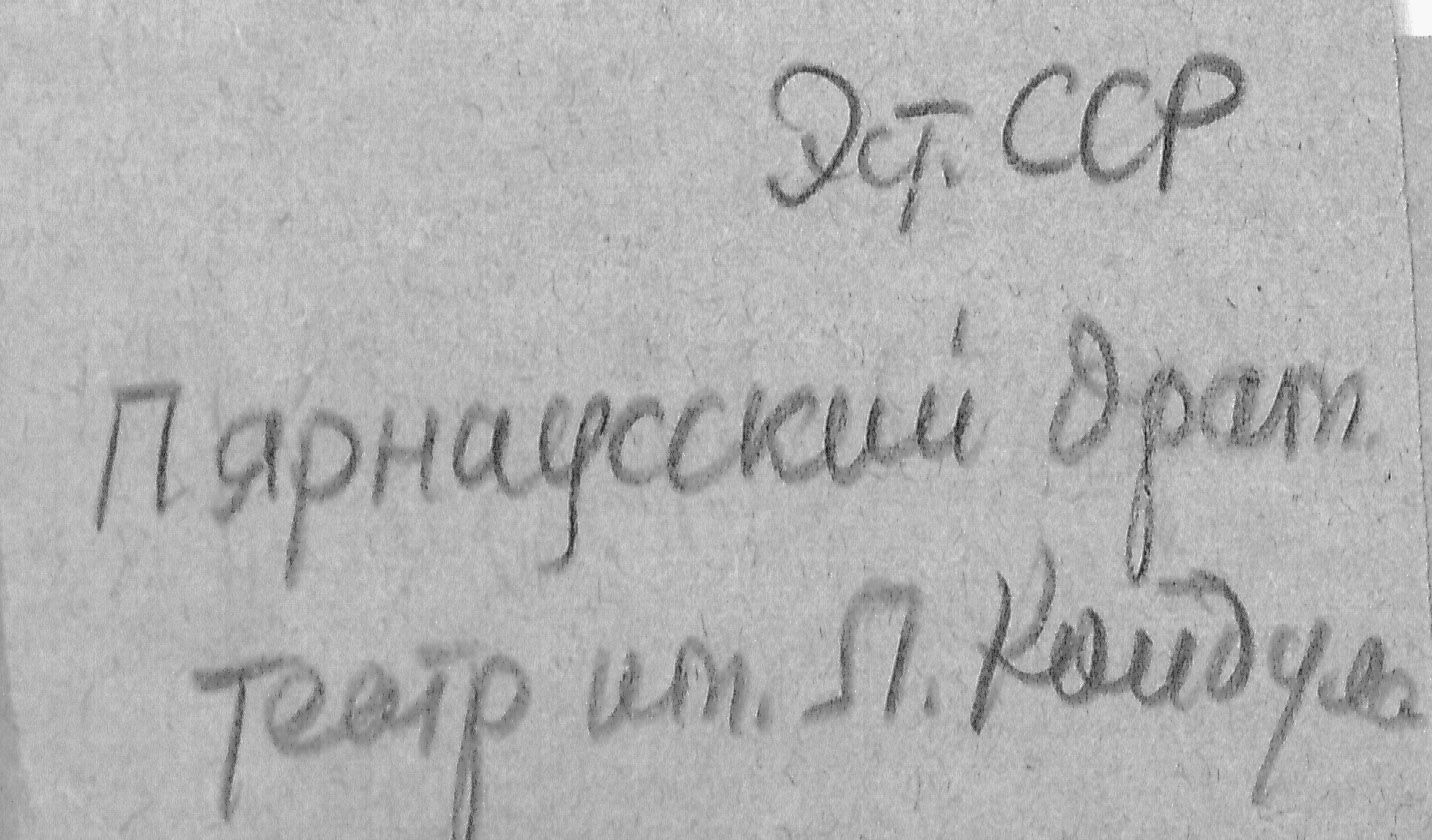 Эст. ССР
Пярнаусский драм.
театр им. Л. Койдула